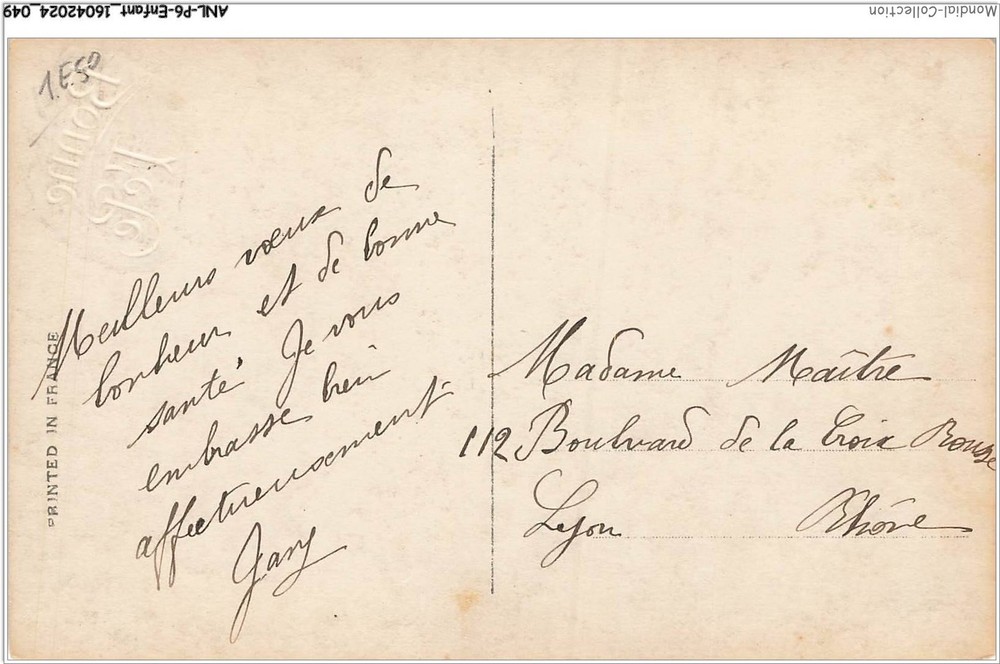 ANL-P6-Enfant_16042024_049
Mondial-Collection
1.E50
Meilleurs vœux de
bonheur et de bonne
santé Je vous
embrasse bien
affectueusement
PRINTED IN FRANCE
Madame Maître
112 Boulvard de la Croix Rousse
Lyon Rhône